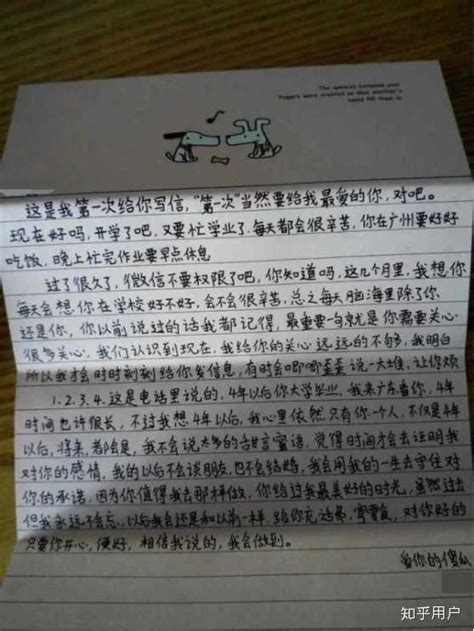 The spaces between your
fingers were created so that another's
could fill them in
这是我第一次给你写信，“第一次”当然要给我最爱的你，对吧。
现在好吗，开学了吧，又要忙学业了，每天都会很辛苦，你在广州要好好
吃饭，晚上忙完作业要早点休息
过了很久了，微信不要权限了吧，你知道吗，这几个月里，我想你
每天会想你在学校好不好，会不会很辛苦，总之每天脑海里除了你
还是你，你以前说过的话我都记得，最重要一句就是你需要关心
很多关心，我们认识到现在，我给你的关心远远的不够，我明白
所以我才会时时刻刻给你发信息，有时会唧唧歪歪说一大堆，让你烦
1.2.3.4.这是电话里说的，4年以后你大学毕业，我来广东看你，4年
时间也许很长，不过我想4年以后，我心里依然只有你一个人，不仅是4年
以后，将来，都会是，我不会说太多的甜言蜜语，觉得时间才会去证明我
对你的感情，我的以后不会谈朋友，也不会结婚，我会用我的一生去守住对
你的承诺，因为你值得我去那样做，你给过我最美好的时光，虽然过去
但我永远不会忘，以后我会还是和以前一样，给你充话费，宠爱，对你好的
只要你开心，便好，相信我说的，我会做到。
爱你的傻瓜
知乎用户